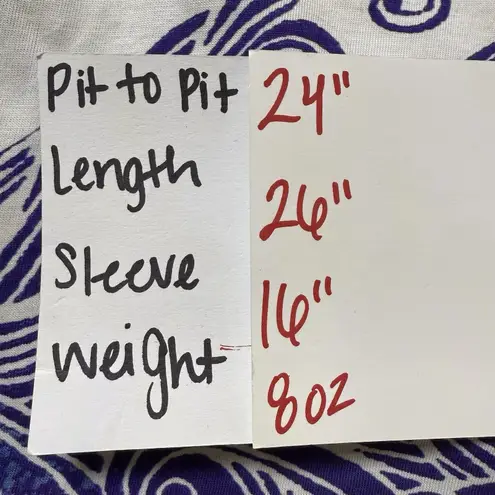 Pit to Pit 24"
Length 26"
Sleeve 16"
weight 8oz